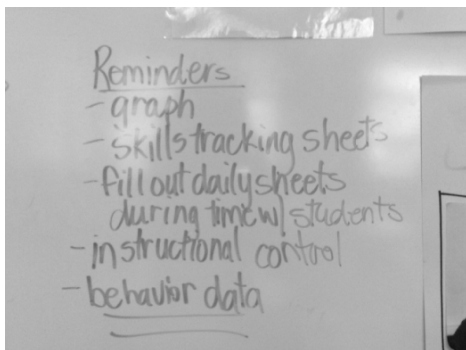 Reminders
- graph
- skills tracking sheets
- fill out daily sheets
during time w/ students
- instructional control
- behavior data